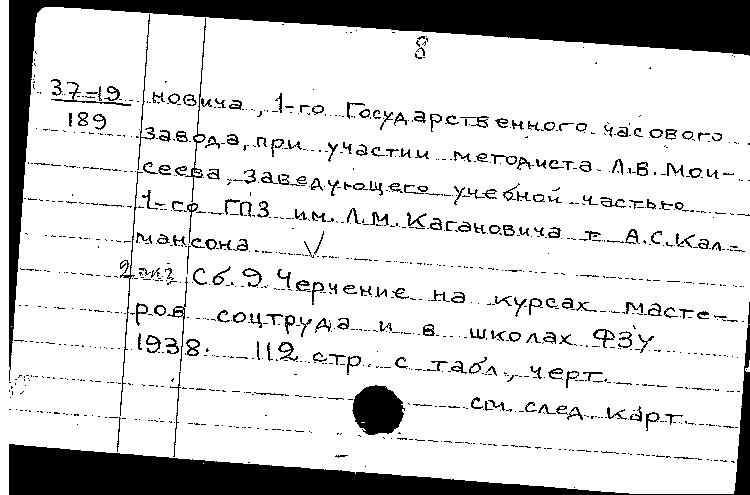 8
37-19 новича, 1-го Государственного часового
189 завода, при участии методиста Л.В. Мои-
сеева, заведующего учебной частью
1-го ГПЗ им. Л.М. Кагановича т. А.С. Кал-
мансона
2 экз Сб. 9. Черчение на курсах масте-
ров соцтруда и в школах ФЗУ
1938. 112 стр с табл., черт.
см. след. карт.